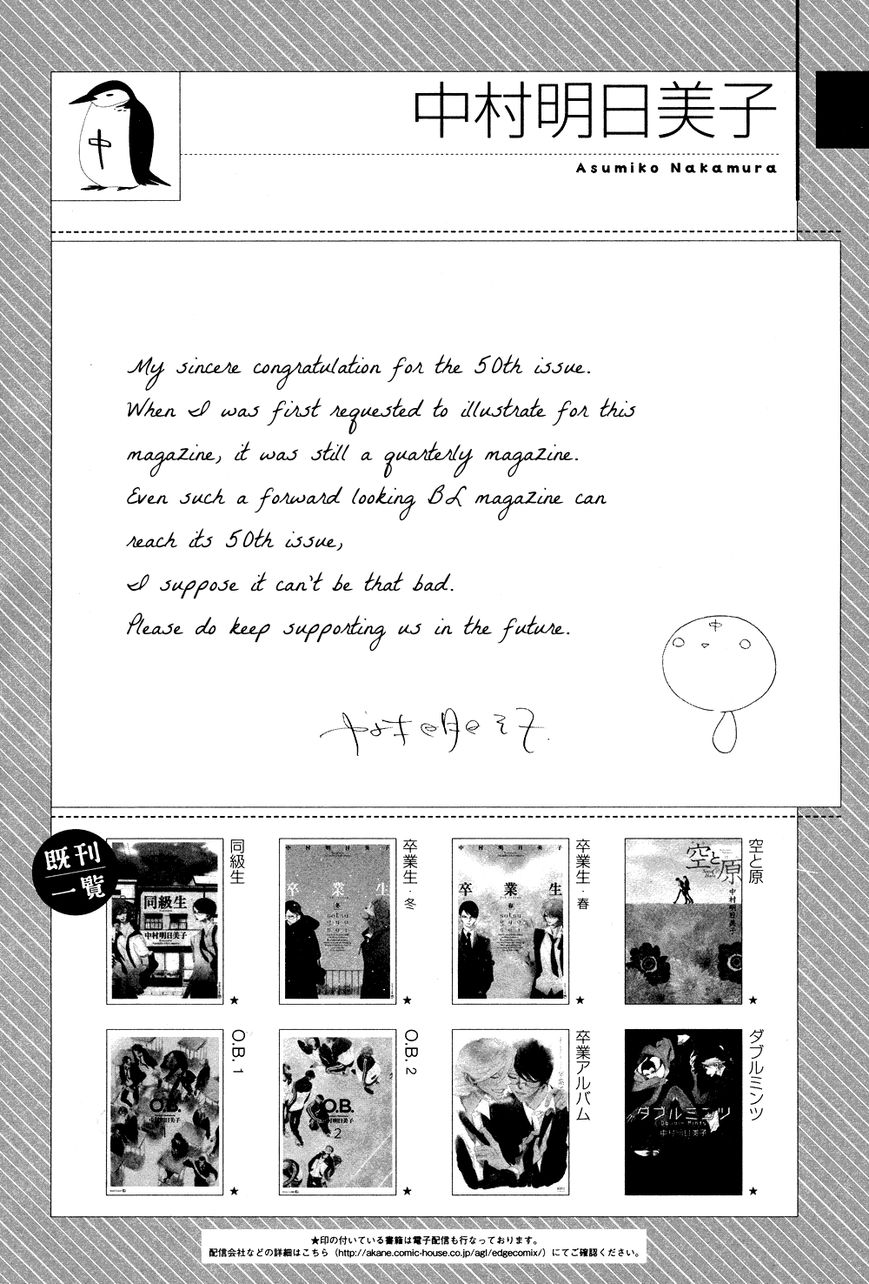 中
中村明日美子
Asumiko Nakamura
My sincere congratulation for the 50th issue.
When I was first requested to illustrate for this
magazine, it was still a quarterly magazine.
Even such a forward looking BL magazine can
reach its 50th issue,
I suppose it can't be that bad.
Please do keep supporting us in the future.
中
中村明日美子
既刊
一覧
同級生
中村明日美子
同級生
★
中村明日美子
卒業生
冬
卒業生・冬
★
中村明日美子
卒業生
春
卒業生・春
★
空と原
中村明日美子
空と原
★
O.B.
中村明日美子
1
O.B. 1
★
O.B.
中村明日美子
2
O.B. 2
★
卒業アルバム
ダブルミンツ
中村明日美子
ダブルミンツ
★
★印の付いている書籍は電子配信も行なっております。
配信会社などの詳細はこちら（http://akane.comic-house.co.jp/agl/edgecomix/）にてご確認ください。